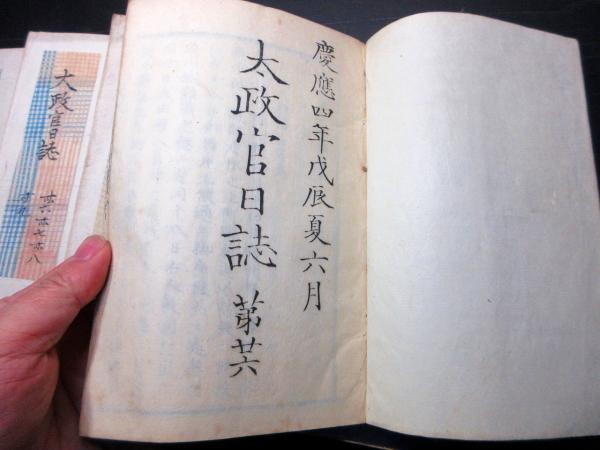 慶應四年戊辰夏六月
太政官日誌 第廿六
太政官日誌
廿六廿七廿八